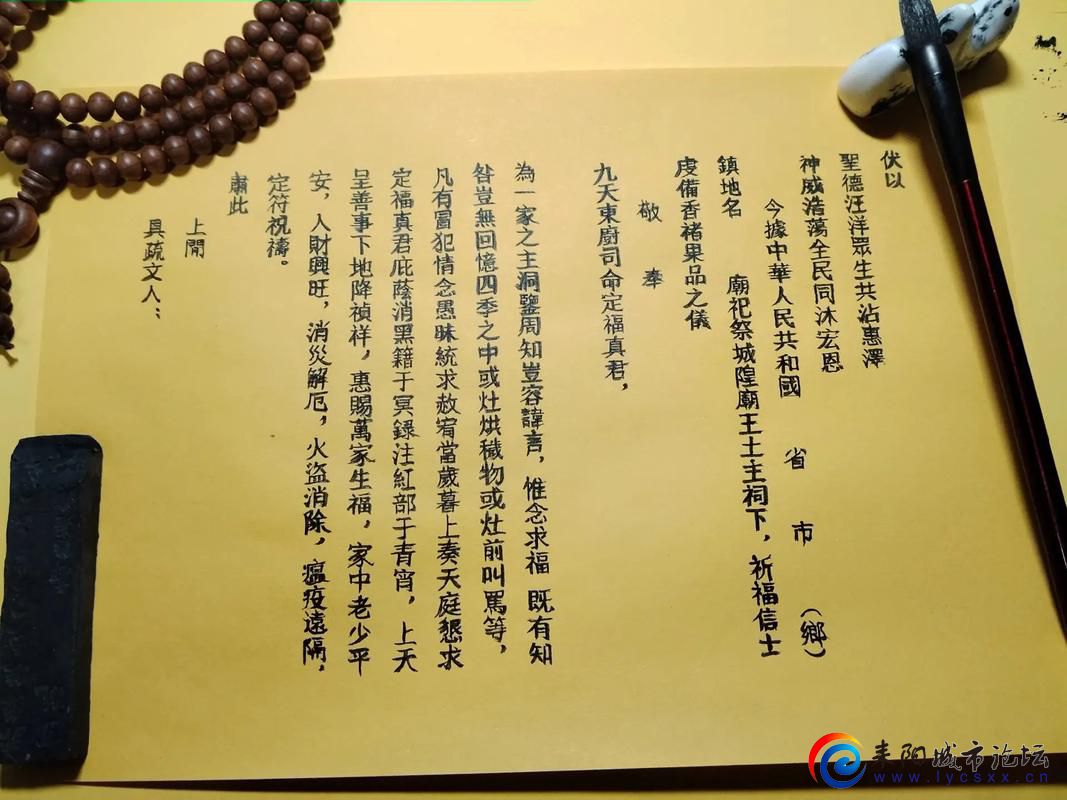 伏以
聖德汪洋眾生共沾惠澤
神威浩蕩全民同沐宏恩
今據中華人民共和國 省 市 (鄉)
鎮地名 廟祀祭城隍廟王土主祠下,祈福信士
虔備香褚果品之儀
敬 奉
九天東廚司命定福真君,
為一家之主洞鑒周知豈容諱言,惟念求福 既有知
咎豈無回憶四季之中或灶烘穢物或灶前叫罵等,
凡有冒犯情念愚昧統求赦宥當歲暮上奏天庭懇求
定福真君庇蔭消黑籍于冥錄注紅部于青宵,上天
呈善事下地降禎祥,惠賜萬家生福,家中老少平
安,人財興旺,消災解厄,火盜消除,瘟疫遠隔,
定符祝禱。
肅此
上聞
具疏文人:
耒阳城市论坛
www.lycsxx.cn